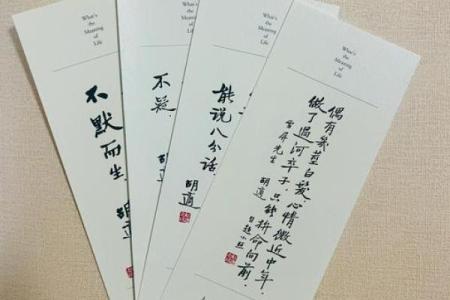 What's
the
Meaning
of
Life
不默而生.
胡適
What's
the
Meaning
of
Life
不疑,
What's
the
Meaning
of
Life
能说八分话
胡適
What's
the
Meaning
of
Life
偶有幾莖白髮,心情微近中年.
做了過河卒子,只能拚命向前.
雪屏先生 胡適 自題小照